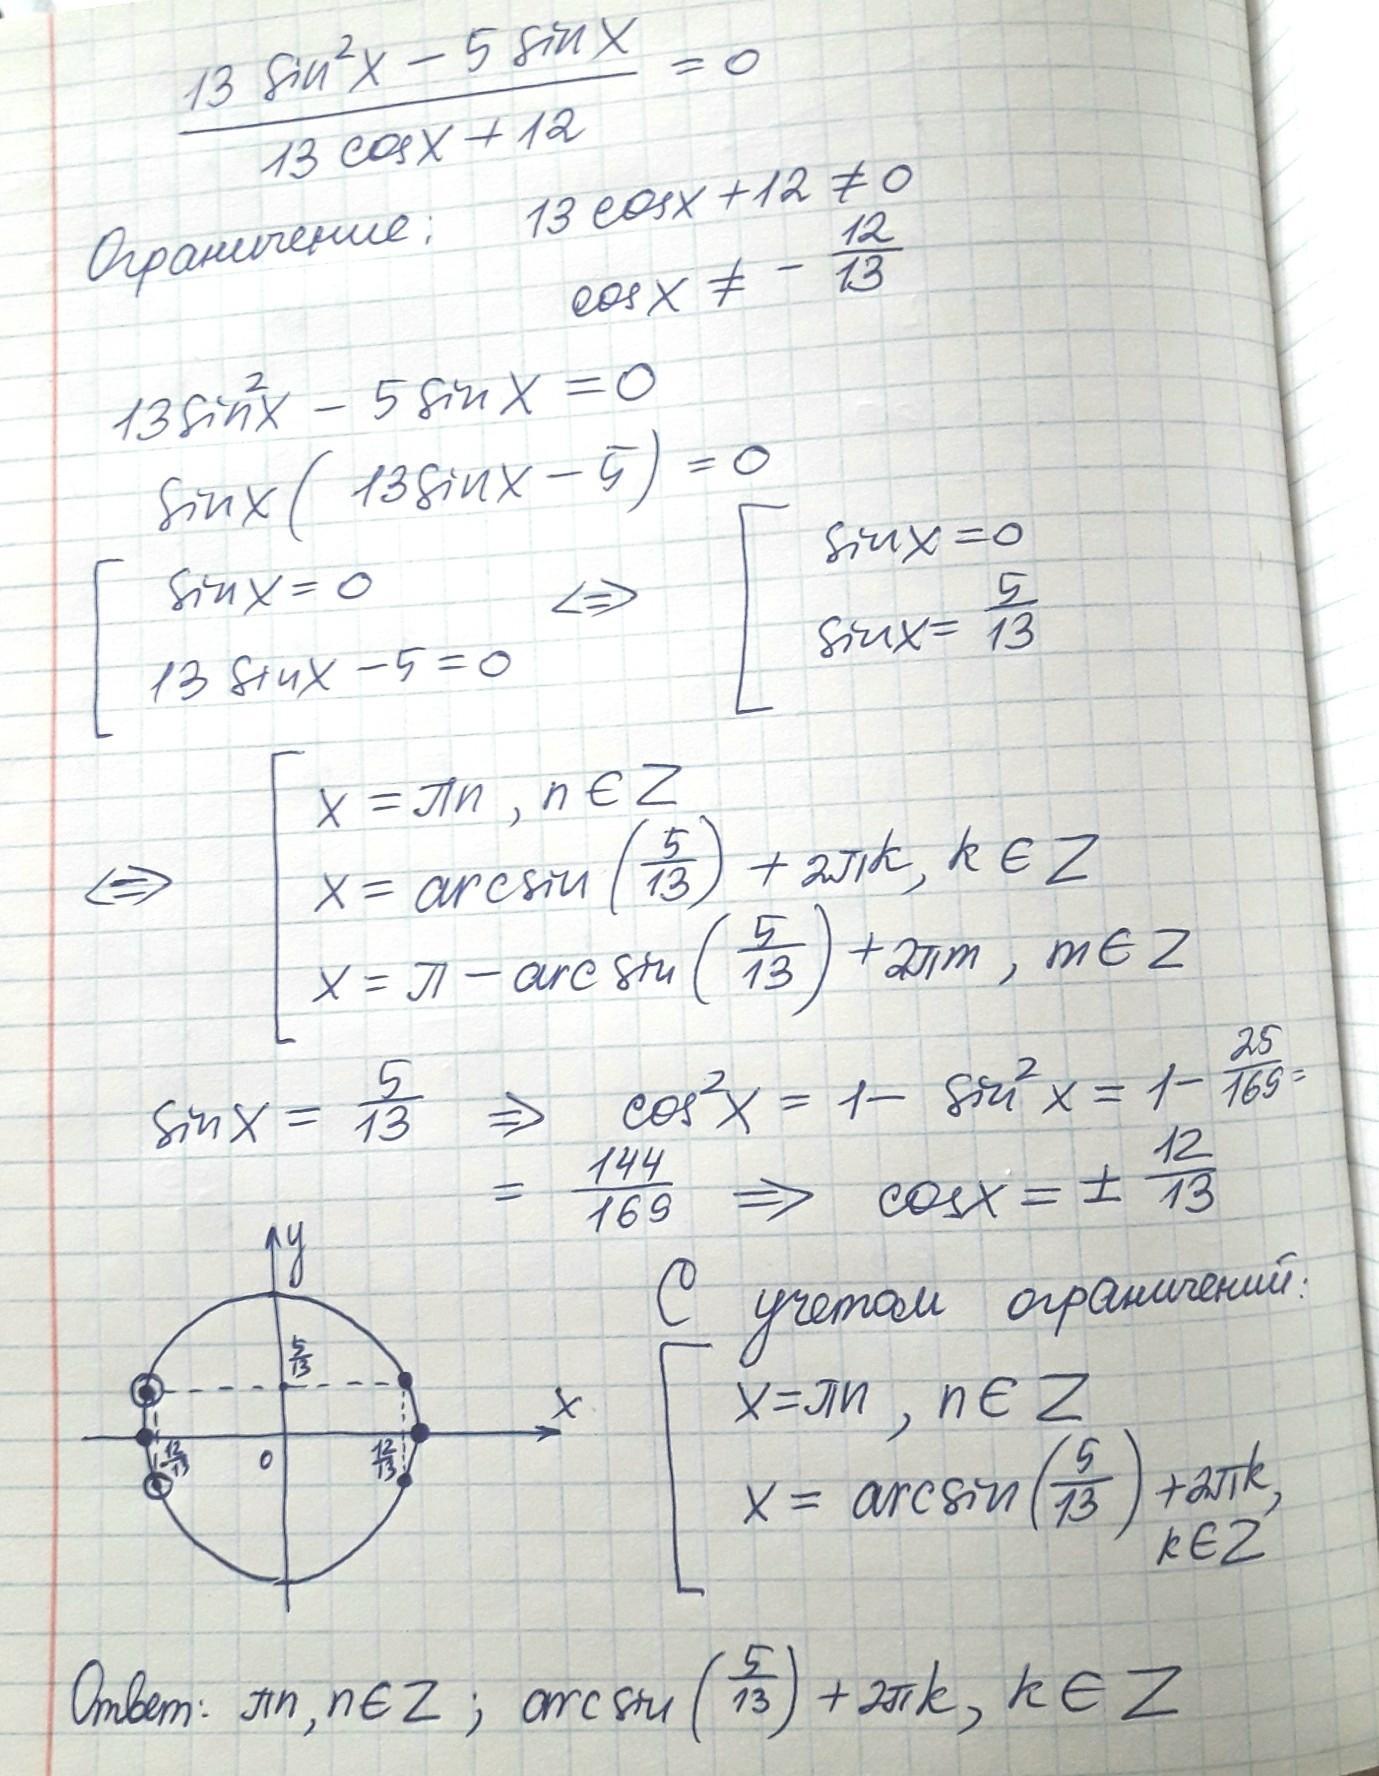 (13 sin²x − 5 sin x)/(13 cosx + 12) = 0
Ограничение: 13 cosx + 12 ≠ 0
cosx ≠ − 12/13
13 sin²x − 5 sin x = 0
sin x ( 13 sin x − 5 ) = 0
[ sin x = 0 <=> [ sin x = 0
13 sin x − 5 = 0 sin x = 5/13
<=> [ x = πn , n ∈ Z
x = arcsin (5/13) + 2πk, k ∈ Z
x = π − arcsin (5/13) + 2πm , m ∈ Z
sin x = 5/13 => cos²x = 1 − sin²x = 1 − 25/169 =
= 144/169 => cosx = ± 12/13
y
5/13
x
12/13
0
12/13
С учетом ограничений:
[ x = πn , n ∈ Z
x = arcsin (5/13) + 2πk,
k ∈ Z
Ответ: πn, n ∈ Z ; arcsin (5/13) + 2πk, k ∈ Z